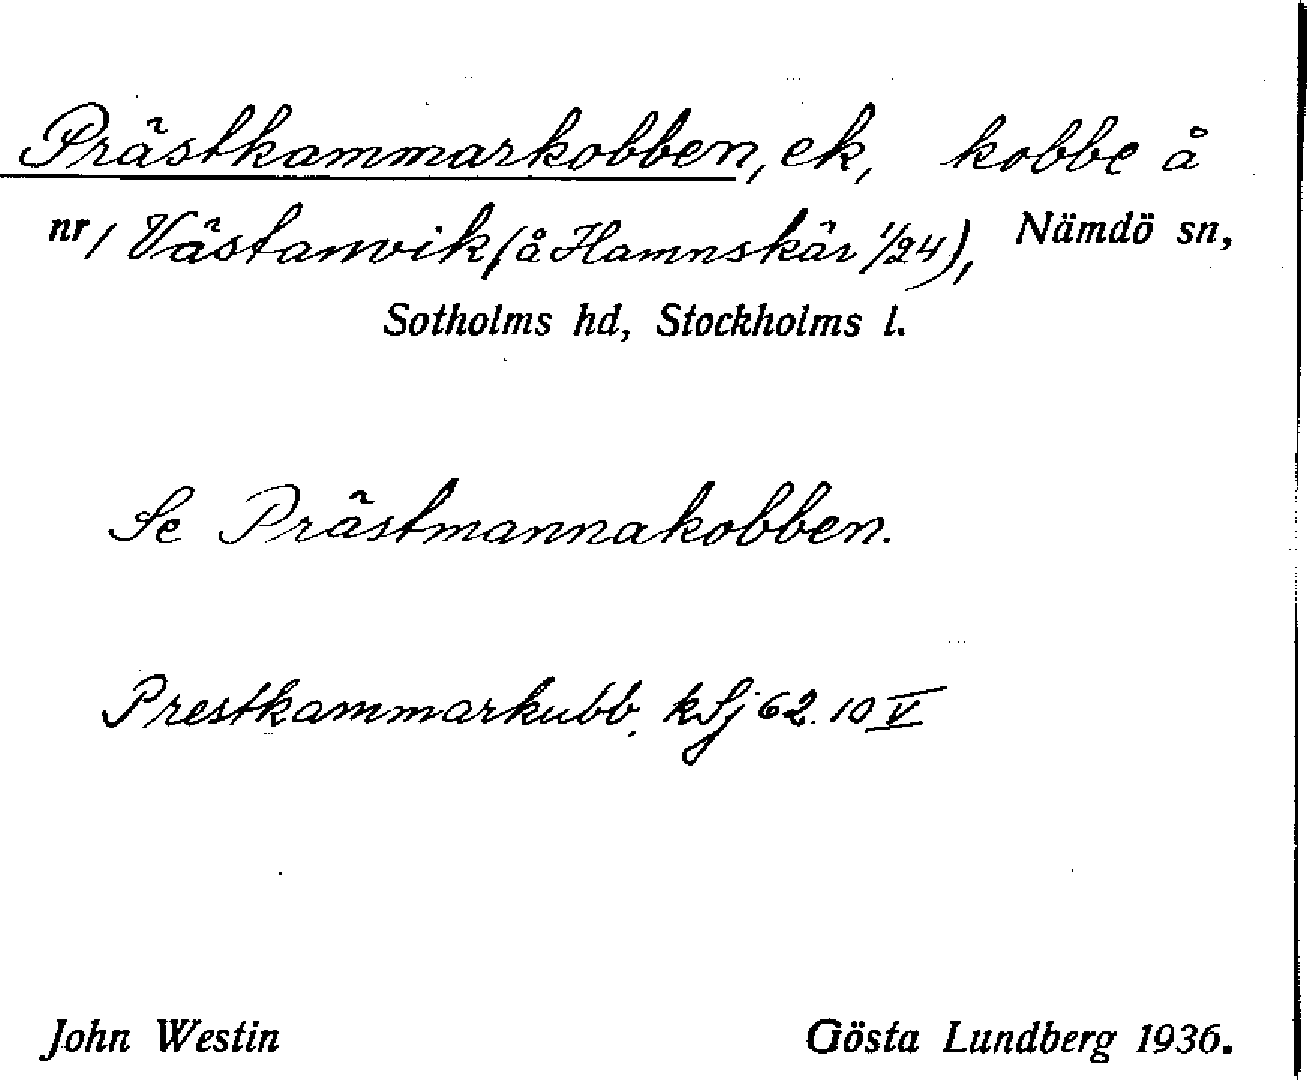 Prästkammarkobben, ek, kobbe å
nr 1 Västanvik (å Hamnskär 1/24), Nämdö sn,
Sotholms hd, Stockholms l.
Se Prästmannakobben.
Prestkammarkubb. kSj 62. 10 V
John Westin Gösta Lundberg 1936.